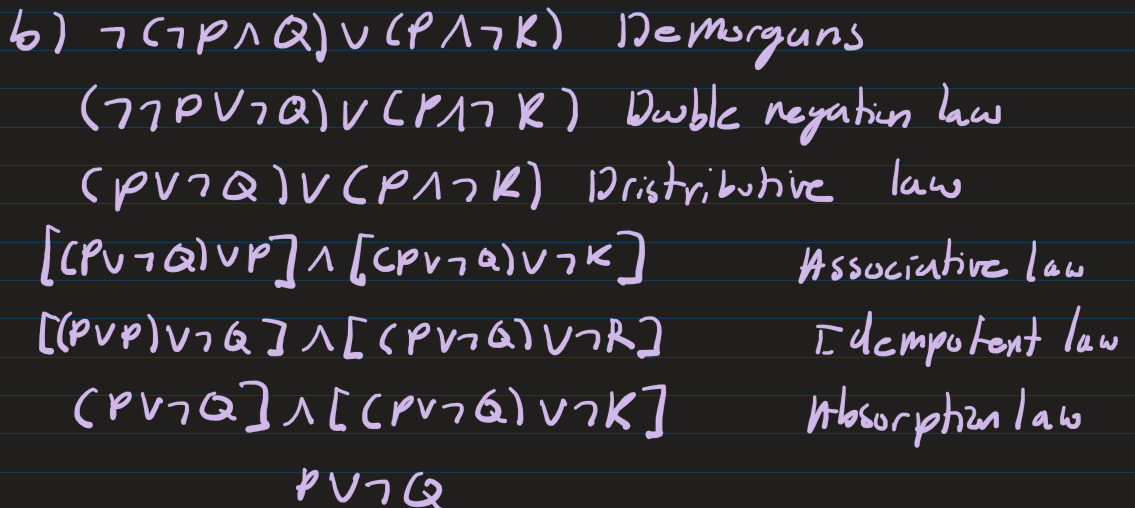 b) ¬(¬P∧Q)∨(P∧¬R) DeMorguns
(¬¬P∨¬Q)∨(P∧¬R) Double negation law
(P∨¬Q)∨(P∧¬R) Dristributive law
[(P∨¬Q)∨P]∧[(P∨¬Q)∨¬R] Associative law
[(P∨P)∨¬Q]∧[(P∨¬Q)∨¬R] Idempotent law
(P∨¬Q]∧[(P∨¬Q)∨¬R] Absorption law
P∨¬Q